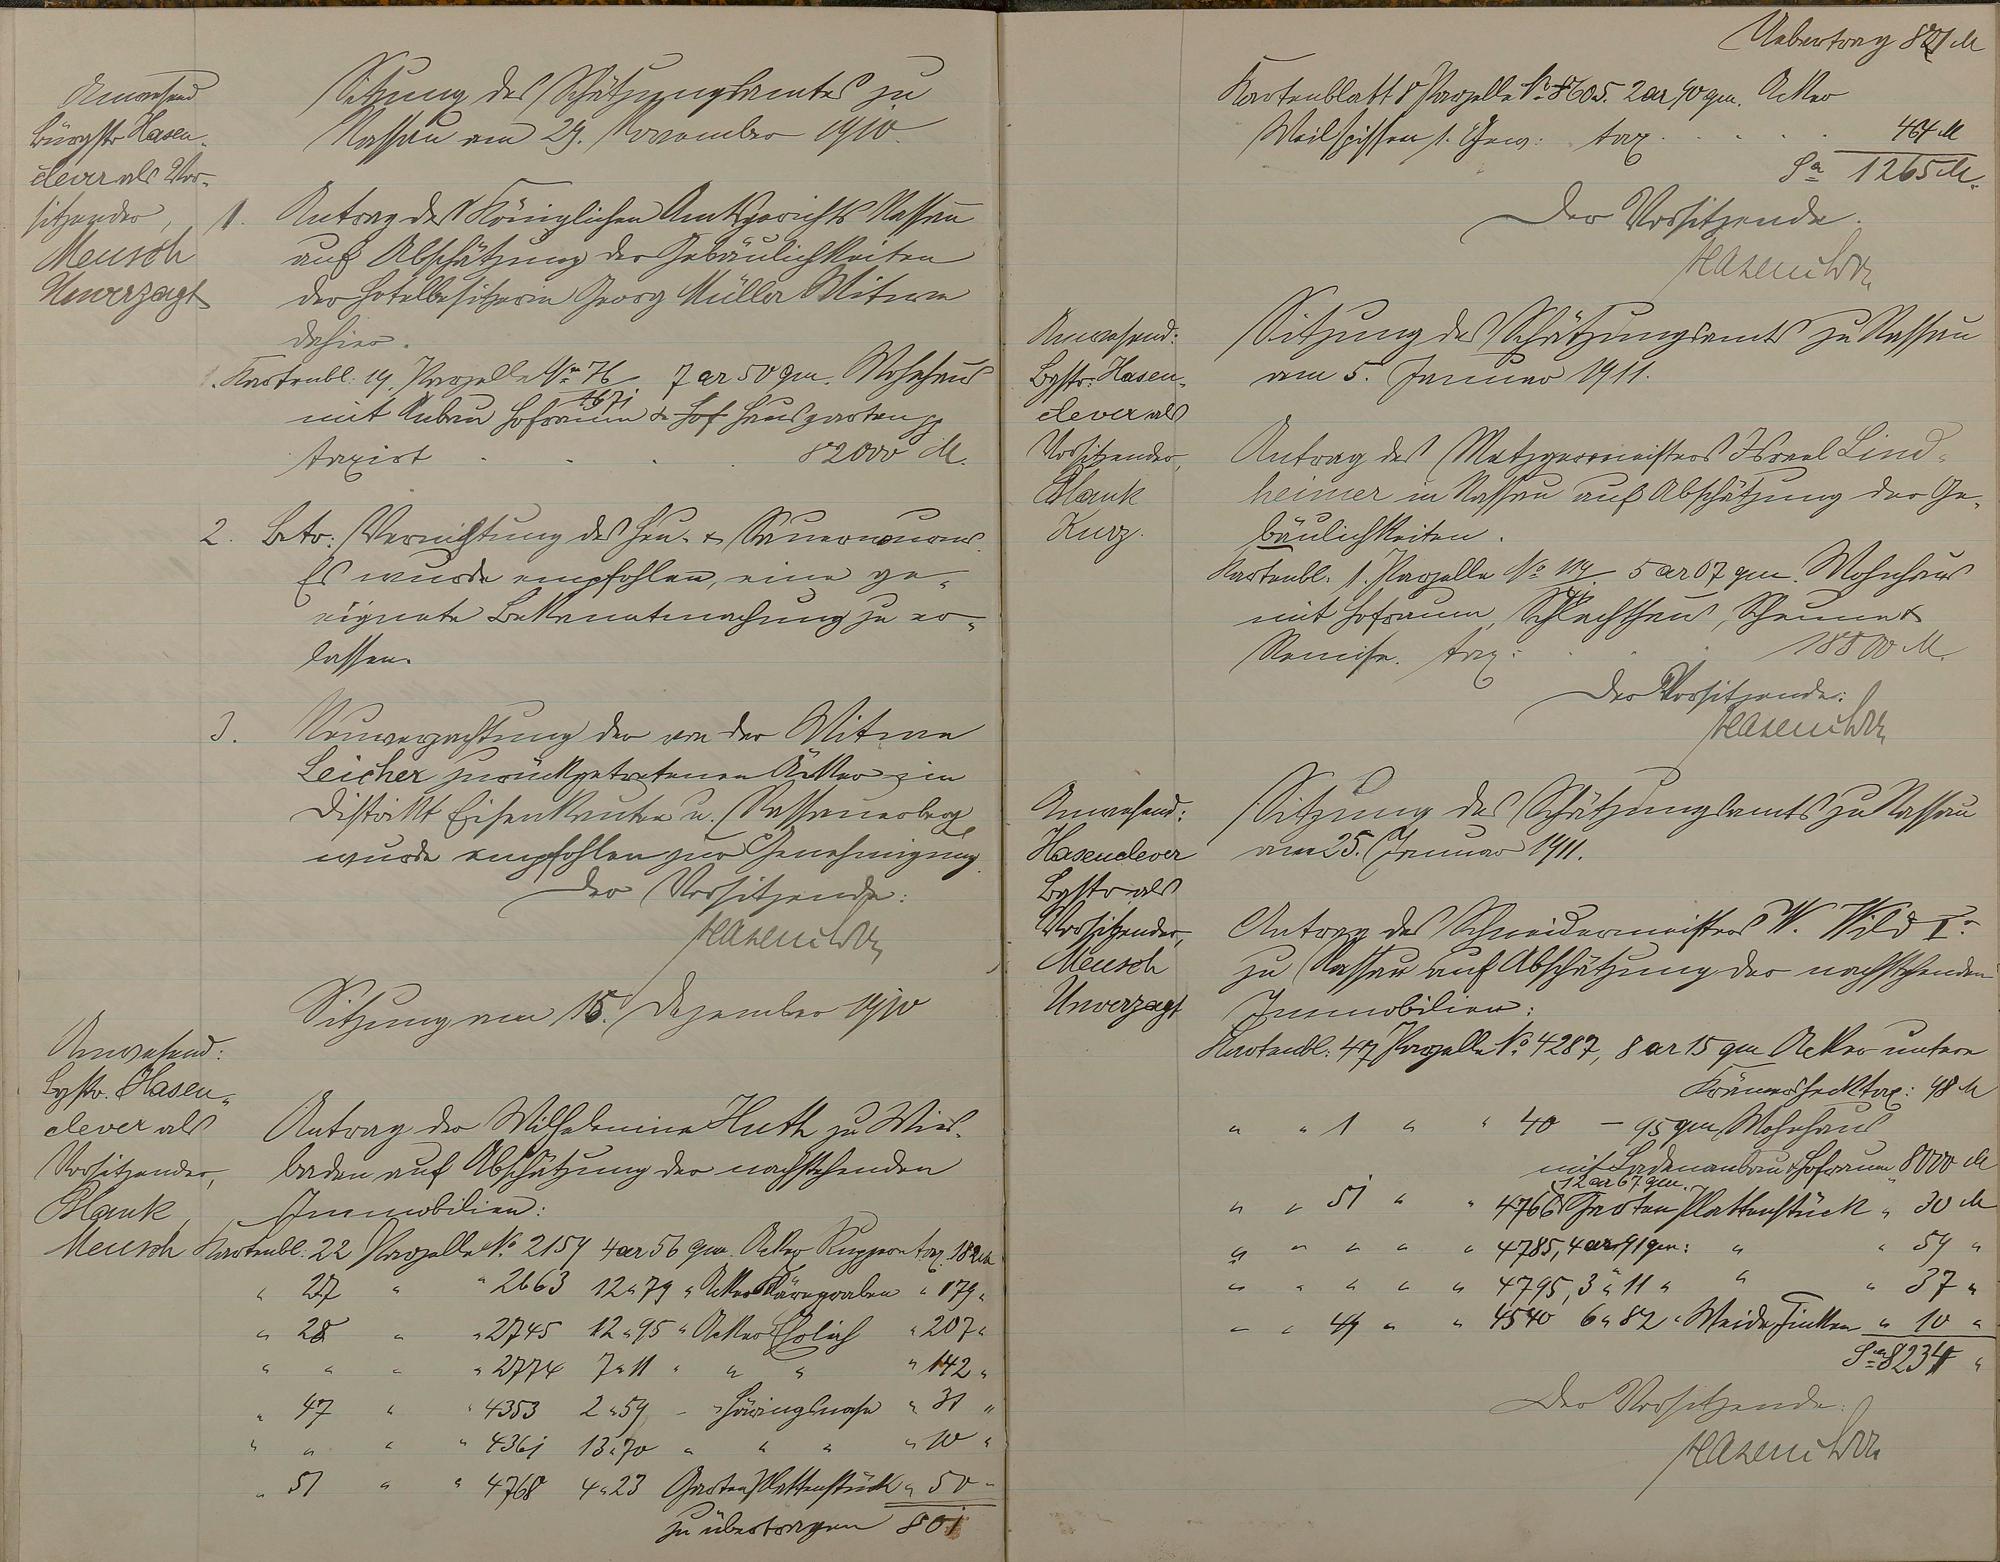 Anwesend
Bürgstr. Hasen-
clever als Vor-
sitzender,
Meusch
Unverzagt
Sitzung des Schätzungsamtes zu
Nassau am 29. November 1910.
1. Antrag des Königlichen Amtsgerichts Nassau
auf Abschätzung der Gebäulichkeiten
der Hotelbesitzerin Georg Müller Witwe
dahier.
Kartenbl. 19. Parzelle No 76 7 ar 50 qm. Wohnhaus
mit Anbau Hofraum & Hof Hausgarten pp
taxirt 82000 M.
2. Betr: Vernichtung des Heu- & Sauerwurms.
Es wurde empfohlen, eine ge-
eignete Bekanntmachung zu er-
lassen.
3. Neuverpachtung der von der Witwe
Leicher zurückgetretenen Äcker im
Distrikt Eisenkaute u. Nassauerberg
wurde empfohlen zur Genehmigung.
Der Vorsitzende:
Hasenclever
Sitzung am 15. Dezember 1910
Anwesend:
Bgstr. Hasen-
clever als
Vorsitzender,
Blank
Meusch
Antrag der Wilhelmine Huth zu Wies-
baden auf Abschätzung der nachstehenden
Immobilien:
Kartenbl: 22 Parzelle No 2159 4 ar 56 qm. Acker Ruppert tax. 182 M
" 27 " " 2663 12 " 79 " Acker Bärngraben " 179 "
" 28 " " 2745 12 " 95 " Acker Ehrlich " 207 "
" " " " 2774 7 " 11 " " " " 142 "
" 47 " " 4353 2 " 59 " Häringsnase " 31 "
" " " " 4361 13 " 70 " " " " 10 "
" 51 " " 4768 4 " 23 Garten Plattenstück " 50 "
zu übertragen 801
Uebertrag 801 M
Kartenblatt 8 Parzelle No 605. 2 ar, 90 qm. Acker
1. Gew: tax. 464 M
Sa 1265 M.
Der Vorsitzende.
Hasenclever
Anwesend:
Bgstr. Hasen-
clever als
Vorsitzender,
Blank
Kurz.
Sitzung des Schätzungsamts zu Nassau
am 5. Januar 1911.
Antrag des Metzgermeisters Israel Lind-
heimer in Nassau auf Abschätzung der Ge-
bäulichkeiten.
Kartenbl. 1. Parzelle No 5 ar 07 qm. Wohnhaus
mit Hofraum, Schlachthaus, Scheune &
Remise. tax: 18800 M.
Der Vorsitzende:
Hasenclever
Anwesend:
Hasenclever
Bgstr als
Vorsitzender,
Meusch
Unverzagt
Sitzung des Schätzungsamts zu Nassau
am 25. Januar 1911.
Antrag des Schneidermeisters W. Wild Ir
zu Nassau auf Abschätzung der nachstehenden
Immobilien:
Kartenbl: 47 Parzelle No 4287, 8 ar 15 qm Acker untere
Krämersheck tax: 98 M
" " 1 " " 40 – 95 qm Wohnhaus
mit Ladenanbau & Hofraum " 8000 M
12 ar 67 qm.
" " 51 " " 4766 Garten Plattenstück " 30 M
" " " " " 4785, 4 ar 91 qm: " " 59 "
" " " " " 4795, 3 " 11 " " " 37 "
" " 49 " " 4540 6 " 82 " Weide Finken " 10 "
Sa 8234 "
Der Vorsitzende:
Hasenclever